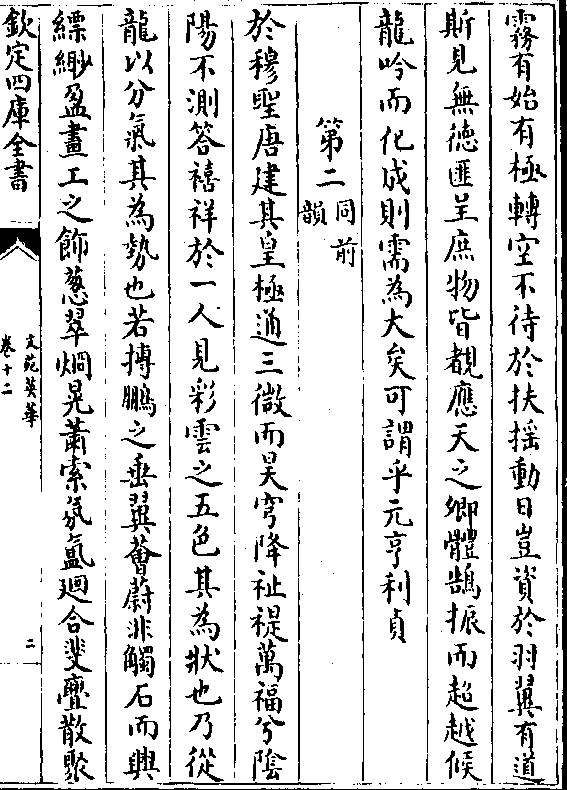 霧有始有極轉空不待於扶揺動日豈資於羽翼有道
斯見無徳匪呈庶物皆覩應天之卿體鵠振而超越候
龍吟而化成則需為大矣可謂乎元亨利貞
第二同前韻
於穆聖唐建其皇極通三微而昊穹降祉禔萬福兮隂
陽不測答禧祥於一人見彩雲之五色其為狀也乃從
龍以分氣其為勢也若摶鵬之垂翼薈蔚非觸石而興
縹緲盈畫工之飾葱翠烱晃蕭索氛氲廻合斐亹散聚
欽定四庫全書
文苑英華
卷十二
二